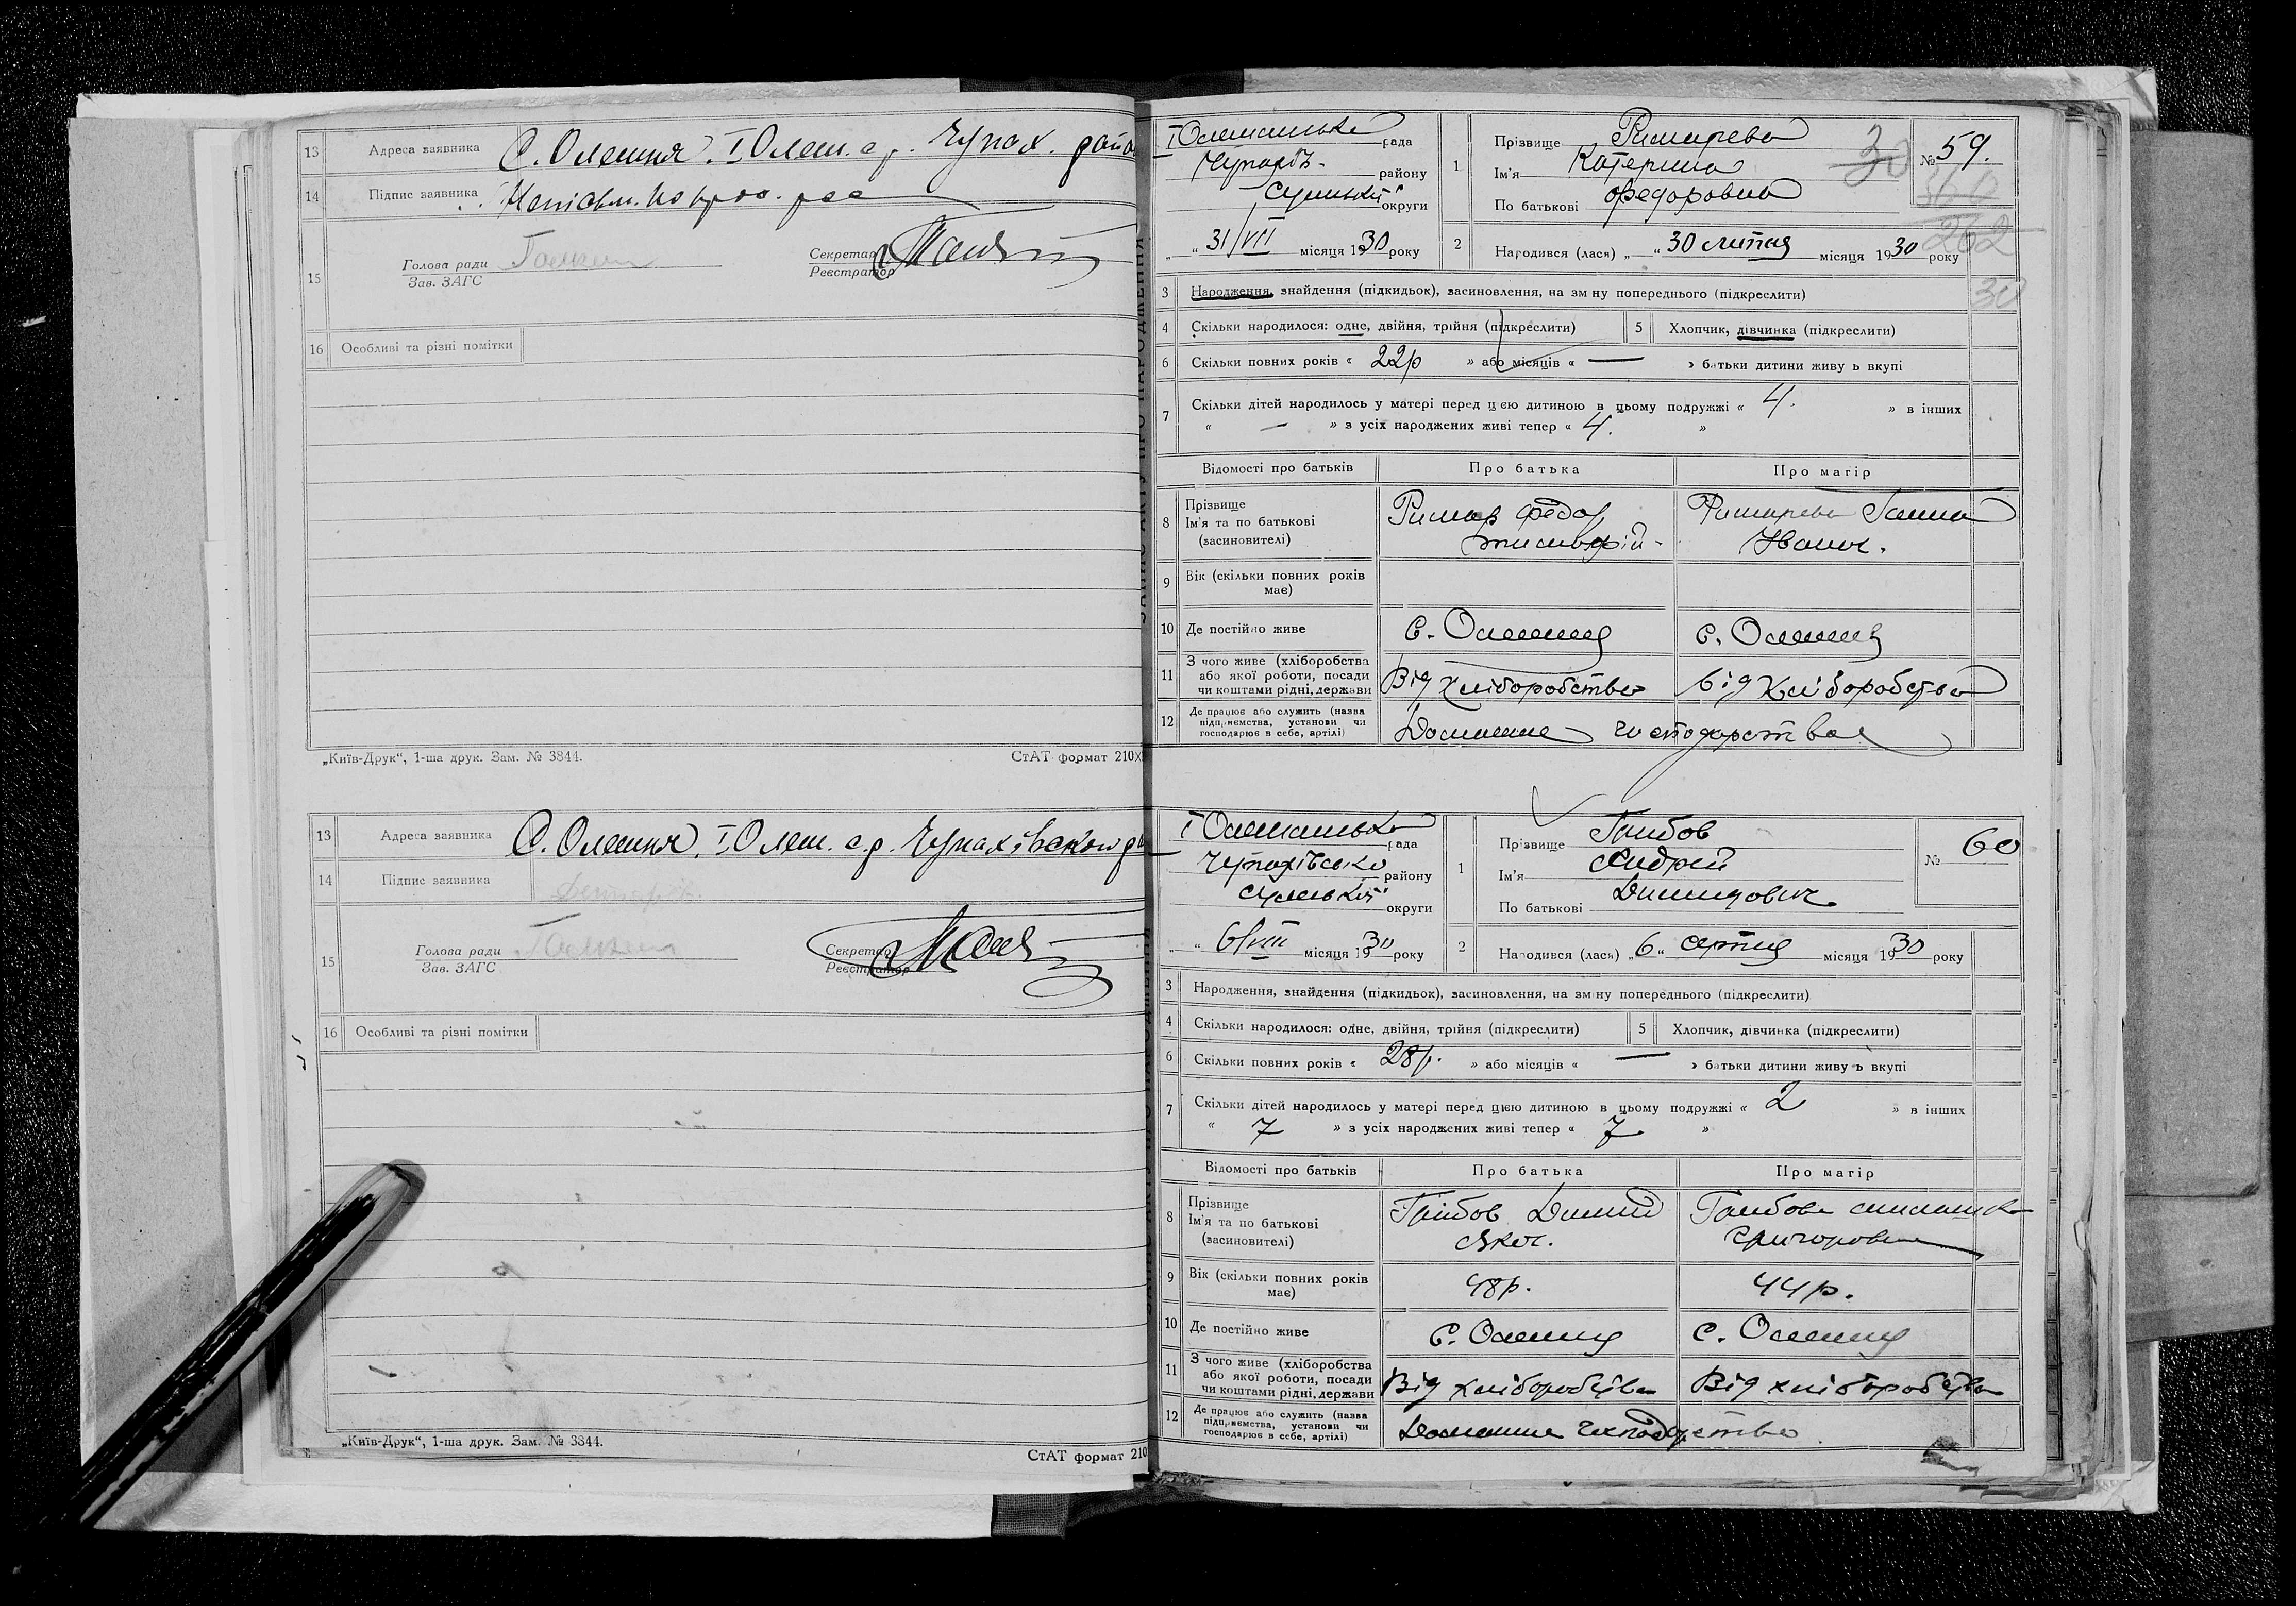 13 Адреса заявника С. Олешня. І Олеш. с.р. Чупах. район
14 Підпис заявника
15 Голова ради Зав. ЗАГС Секретар Реєстратор
16 Особливі та різні помітки
„Київ-Друк“, 1-ша друк. Зам. № 3844. СтАТ формат 210X
13 Адреса заявника С. Олешня. І Олеш. с.р. Чупахівского
14 Підпис заявника
15 Голова ради Зав. ЗАГС Секретар Реєстратор
16 Особливі та різні помітки
„Київ-Друк“, 1-ша друк. Зам. № 3844.
СтАТ формат 210
І Олешанська рада
Чупахів. району
Сумської округи
„ “ 31/VII місяця 1930 року
1 Прізвище Римарева
Ім'я Катерина
По батькові Федоровна
№ 59.
30
262
30
2 Народився (лася) „ “ 30 липня місяця 1930 року
3 Народження, знайдення (підкидьок), засиновлення, на зміну попереднього (підкреслити)
4 Скільки народилося: одне, двійня, трійня (підкреслити) 5 Хлопчик, дівчинка (підкреслити)
6 Скільки повних років « 22р » або місяців « — » батьки дитини живуть вкупі
7 Скільки дітей народилось у матері перед цією дитиною в цьому подружжі « 4. » в інших
« — » з усіх народжених живі тепер « 4. »
Відомості про батьків Про батька Про матір
8 Прізвище Ім'я та по батькові (засиновителі)
Римар Федор
Римарева Ганна
Иванов.
9 Вік (скільки повних років має)
10 Де постійно живе С. Олешня С. Олешня
11 З чого живе (хліборобства або якої роботи, посади чи коштами рідні, держави Від хліборобства Від хліборобства
12 Де працює або служить (назва підприємства, установи чи господарює в себе, артілі) Домашне господарство
І Олешанська рада
Чупахівсько району
Сумської округи
„ “ 6/VIII місяця 1930 року
1 Прізвище Грибов
Ім'я Андрей
По батькові Демидович
№ 60
2 Народився (лася) „ 6 “ серпня місяця 1930 року
3 Народження, знайдення (підкидьок), засиновлення, на зміну попереднього (підкреслити)
4 Скільки народилося: одне, двійня, трійня (підкреслити) 5 Хлопчик, дівчинка (підкреслити)
6 Скільки повних років « 28р. » або місяців « — » батьки дитини живуть вкупі
7 Скільки дітей народилось у матері перед цією дитиною в цьому подружжі « 2 » в інших
« 7 » з усіх народжених живі тепер « 7 »
Відомості про батьків Про батька Про матір
8 Прізвище Ім'я та по батькові (засиновителі)
Грибов Демид
Яков.
Грибова
Григоровна
9 Вік (скільки повних років має) 48р. 44р.
10 Де постійно живе С. Олешня С. Олешня
11 З чого живе (хліборобства або якої роботи, посади чи коштами рідні, держави Від хліборобства Від хліборобства
12 Де працює або служить (назва підприємства, установи чи господарює в себе, артілі) Домашне господарство